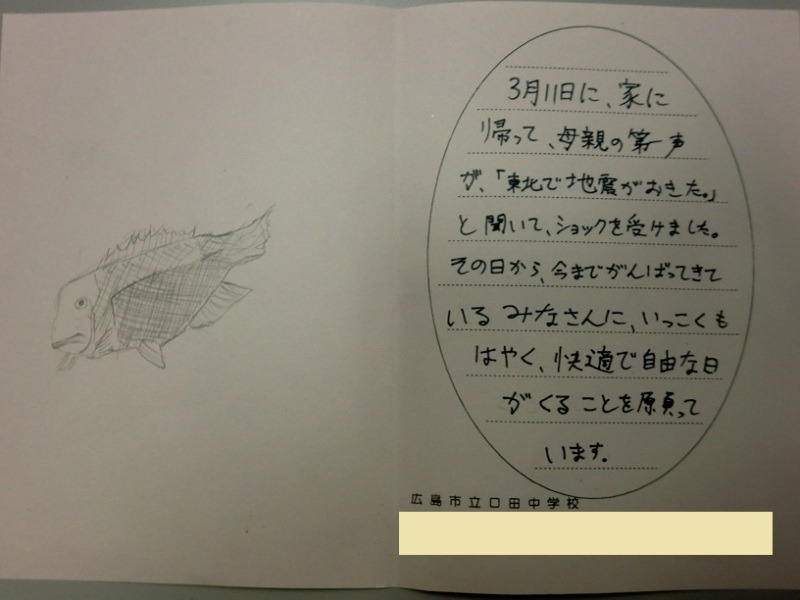 3月11日に、家に
帰って、母親の第一声
が、「東北で地震がおきた。」
と聞いて、ショックを受けました。
その日から、今までがんばってきて
いるみなさんに、いっこくも
はやく、快適で自由な日
がくることを願って
います。
広島市立口田中学校